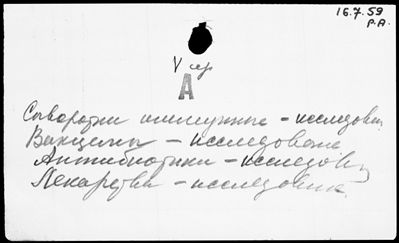 16.7.59
P.A.
V сер
A
Сыворотки иммунные – исследован
Вакцины – исследование
Антибиотики – исследов
Лекарства – исследования